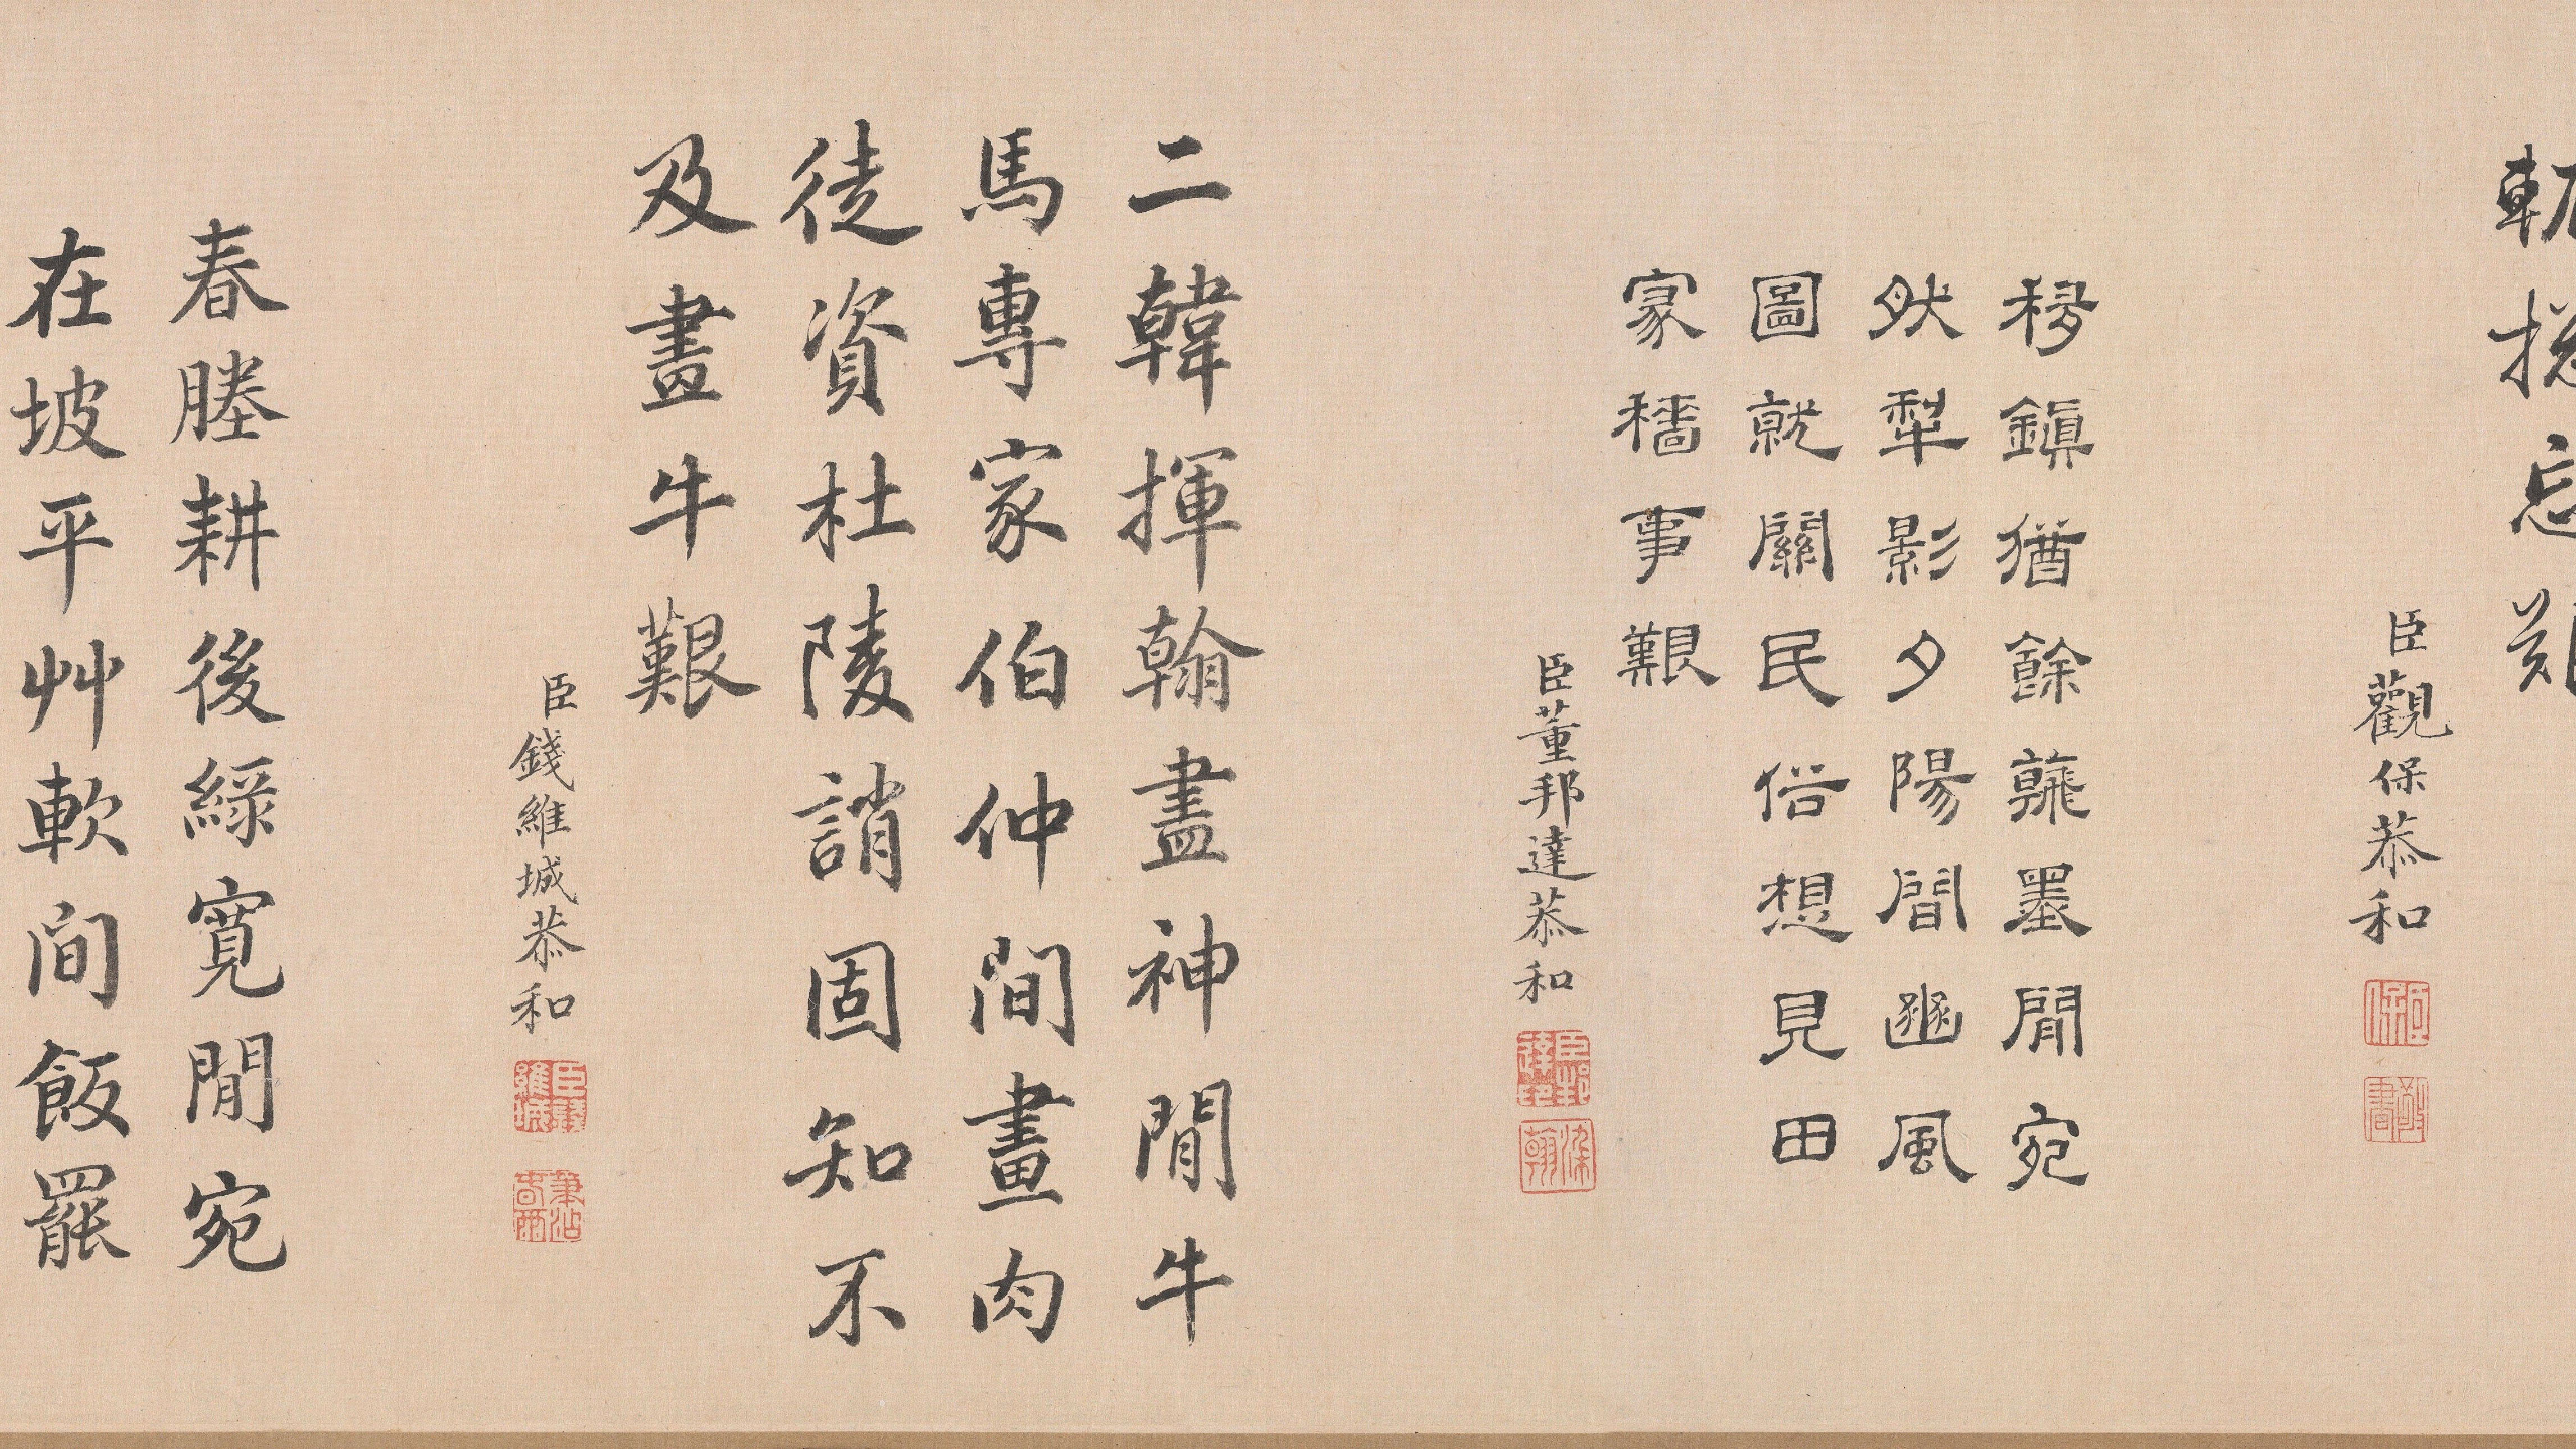 臣觀保恭和
移鎮猶餘蘼墨閒宛
然犁影夕陽間豳風
圖就關民俗想見田
家穡事艱
臣董邦達恭和
二韓揮翰盡神閒牛
馬專家伯仲間畫肉
徒資杜陵誚固知不
及畫牛艱
臣錢維城恭和
春塍耕後綠寬閒宛
在坡平艸軟間飯罷